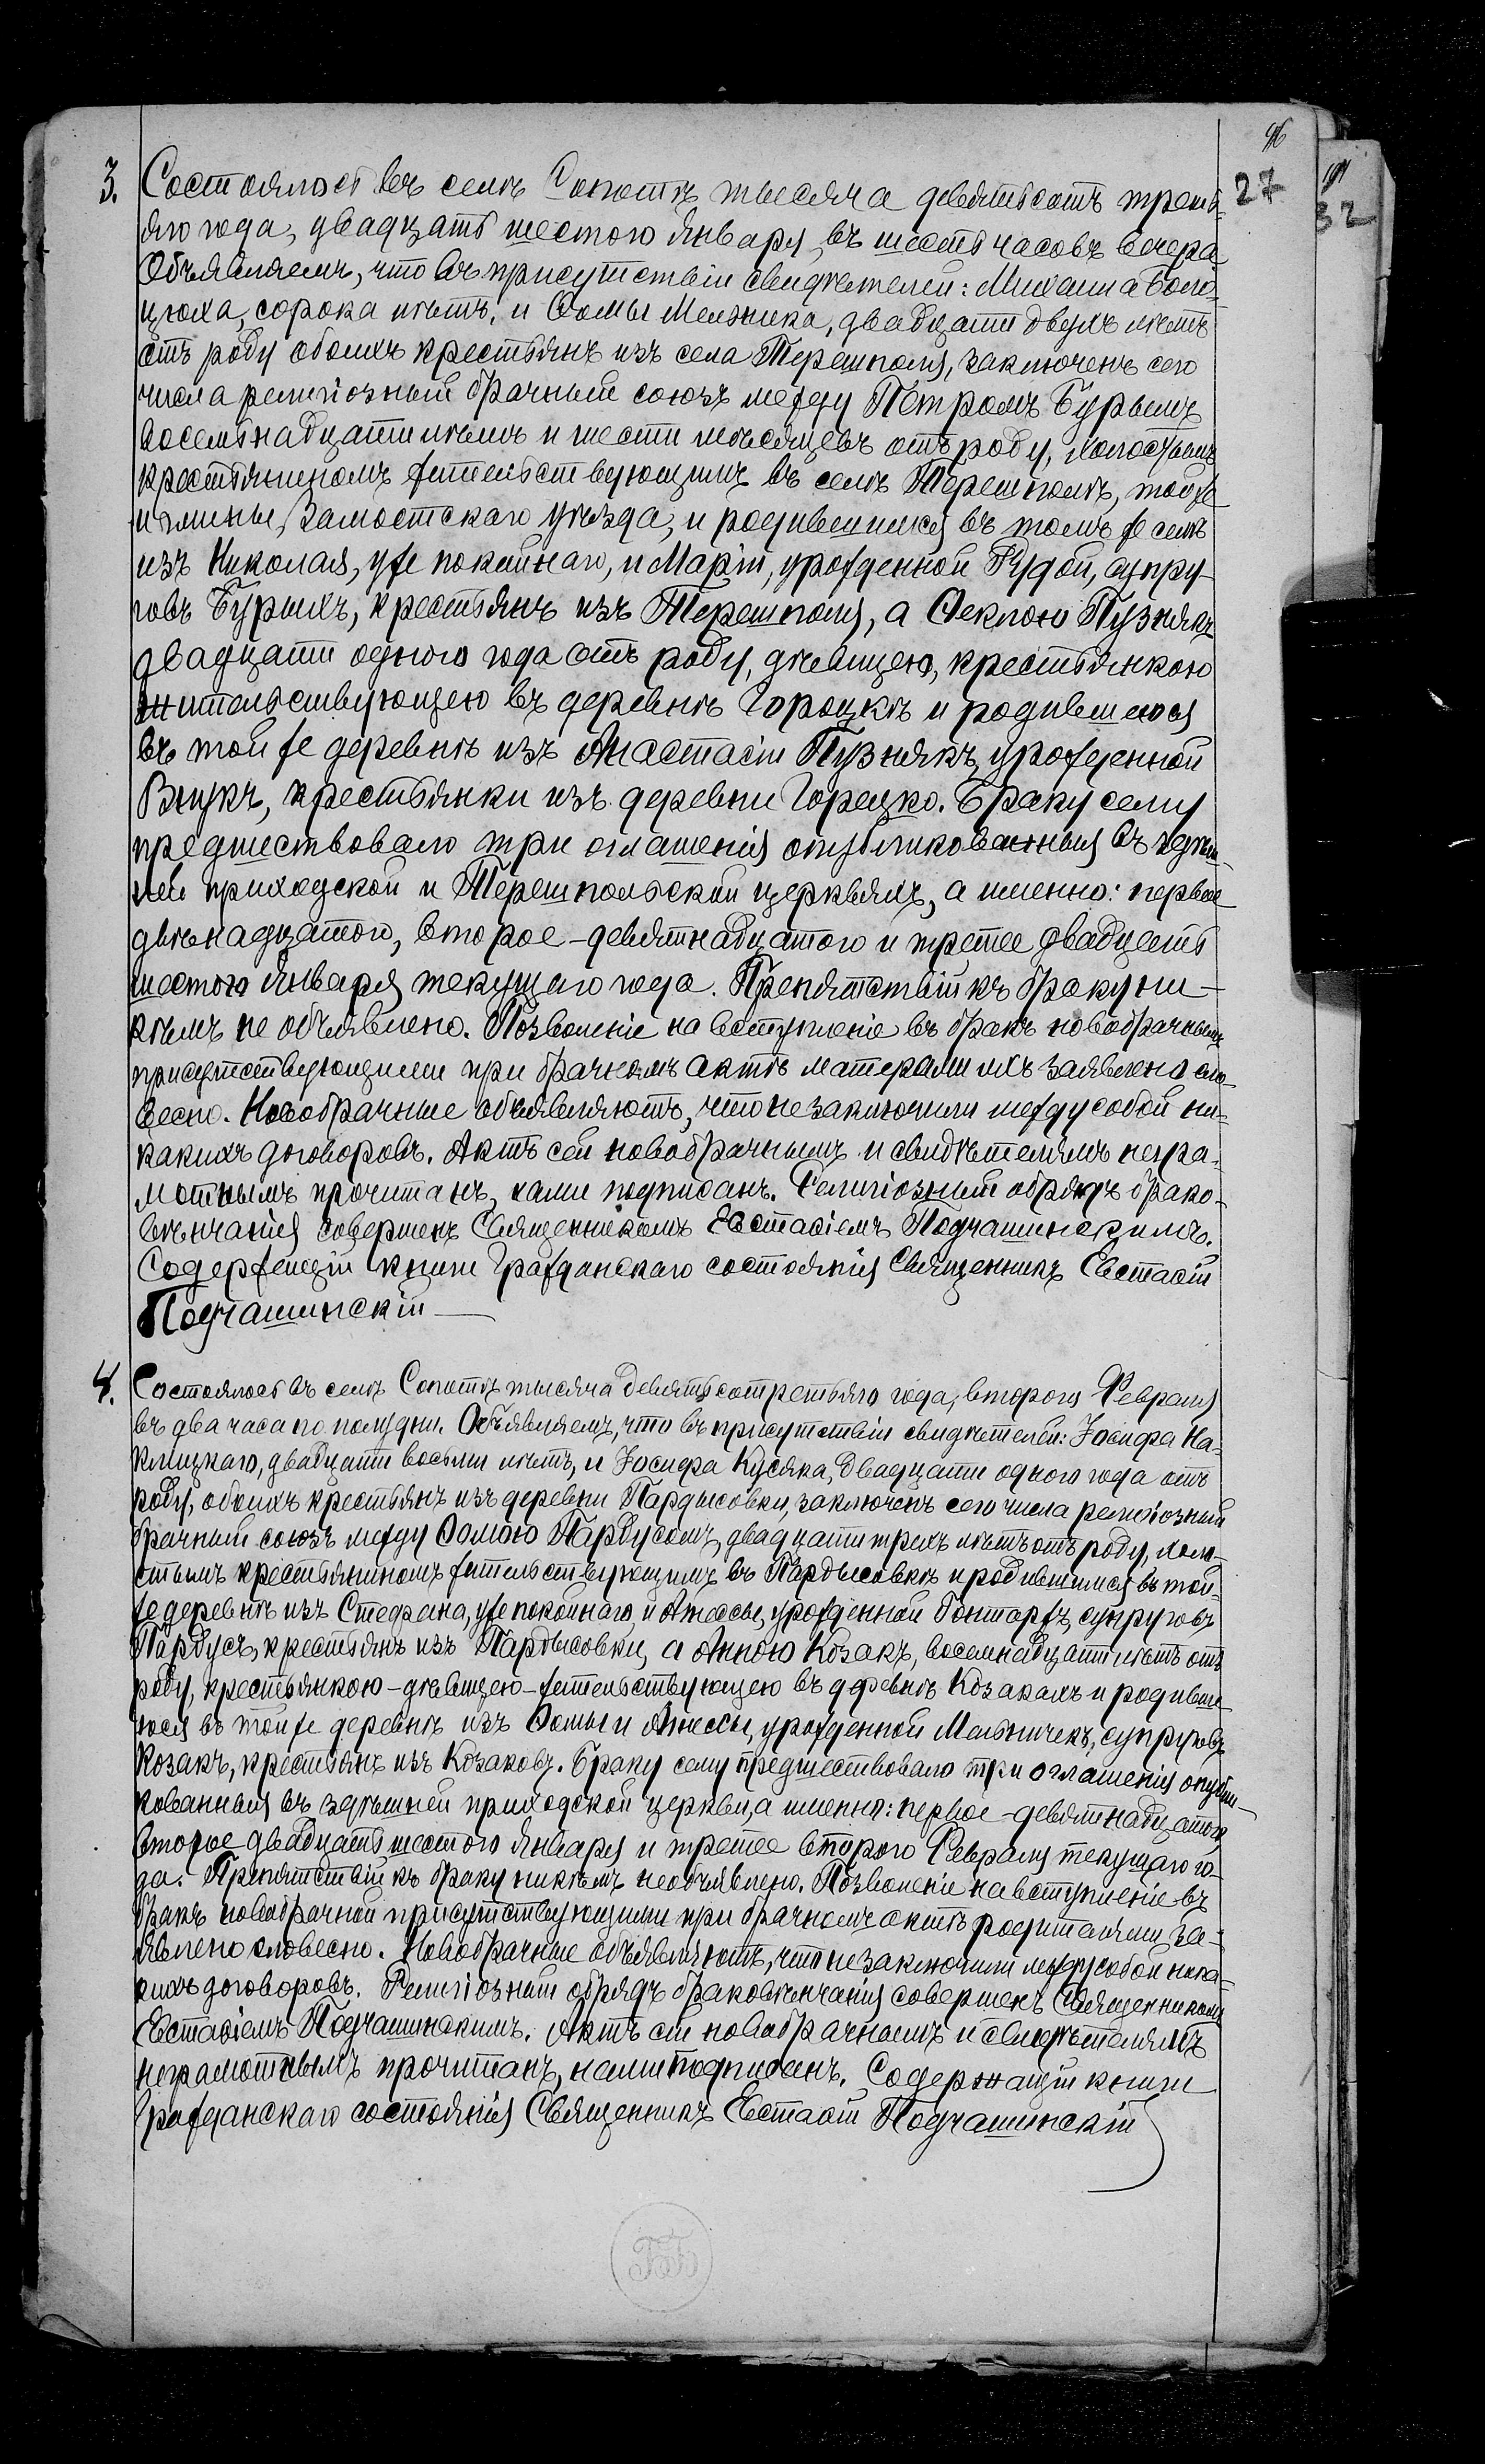 96
27
32
3. Состоялось въ селѣ Сопотѣ тысяча девятьсотъ треть-
яго года, двадцать шестого Января, въ шесть часовъ вечера
Объявляемъ, что въ присутствіи свидѣтелей: Михаила Воло-
цюха, сорока лѣтъ, и Ѳомы Мельника, двадцати двухъ лѣтъ
отъ роду обоихъ крестьянъ изъ села Терешполя, заключенъ сего
числа религіозный брачный союзъ между Петромъ Бурымъ
восемьнадцати лѣтъ и шести мѣсяцевъ отъ роду, холостымъ
крестьяниномъ жительствующимъ въ селѣ Терешполѣ, тойже
гмины, Замостскаго уѣзда, и родившимся въ томъ же селѣ
изъ Николая, уже покойнаго, и Маріи, урожденной Рудой, супру-
говъ Бурыхъ, крестьянъ изъ Терешполя, а Ѳеклою Пузнякъ
двадцати одного года отъ роду, дѣвицею, крестьянкою
жительствующею въ деревнѣ Горецкѣ и родившеюся
въ той же деревнѣ изъ Анастасіи Пузнякъ, урожденной
Внукъ, крестьянки изъ деревни Горецко. Браку сему
предшествовало три оглашенія опубликованныя въ здѣш-
ней приходской и Терешпольской церквяхъ, а именно: первое
двѣнадцатого, второе - девятнадцатого и третее двадцать
шестого Января текущаго года. Препятствій къ браку ни-
кѣмъ не объявлено. Позволеніе на вступленіе въ бракъ новобрачнымъ
присутствующими при брачномъ актѣ матерами ихъ заявлено сло-
весно. Новобрачные объявляютъ, что не заключили между собой ни-
какихъ договоровъ. Актъ сей новобрачнымъ и свидѣтелямъ негра-
мотнымъ прочитанъ, нами подписанъ. Религіозный обрядъ брако-
вѣнчанія совершенъ Священникомъ Евстаѳіемъ Подчашинскимъ.
Содержащій книги Гражданскаго состоянія Священникъ Евстаѳій
Подчашинскій
4. Состоялось въ селѣ Сопотѣ тысяча девятьсотретьяго года, второго Февраля
въ два часа по полудни. Объявляемъ, что въ присутствіи свидѣтелей: Іосифа На-
клицкаго, двадцати восьми лѣтъ, и Іосифа Кусяка, двадцати одного года отъ
роду, обоихъ крестьянъ изъ деревни Пардысовки, заключенъ сего числа религіозный
брачный союзъ между Ѳомою Пардусомъ, двадцати трехъ лѣтъ отъ роду, холо-
стымъ крестьяниномъ жительствующимъ въ Пардысовкѣ и родившимся въ той-
же деревнѣ изъ Стефана, уже покойнаго, и Агнесы, урожденной Бонтаржъ, супруговъ
Пардусъ, крестьянъ изъ Пардысовки, а Анною Козакъ, восемнадцати лѣтъ отъ
роду, крестьянкою - дѣвицею - жительствующею въ деревнѣ Козакахъ и родивше-
юся въ той же деревнѣ изъ Ѳомы и Агнесы, урожденной Мельничекъ, супруговъ
Козакъ, крестьянъ изъ Козаковъ. Браку сему предшествовало три оглашенія опубли-
кованныя въ здѣшней приходской церкви, а именно: первое - девятнадцатого
второе двадцать шестого Января и третее второго Февраля текущаго го-
да. Препятствій къ браку никѣмъ не объявлено. Позволеніе на вступленіе въ
бракъ новобрачной присутствующими при брачномъ актѣ родителями за-
явлено словесно. Новобрачные объявляютъ, что не заключили между собой ника-
кихъ договоровъ. Религіозный обрядъ браковѣнчанія совершенъ Священникомъ
Евстаѳіемъ Подчашинскимъ. Актъ сей новобрачнымъ и свидѣтелямъ
неграмотнымъ прочитанъ, нами подписанъ. Содержащій книги
Гражданскаго состоянія Священникъ Евстаѳій Подчашинскій